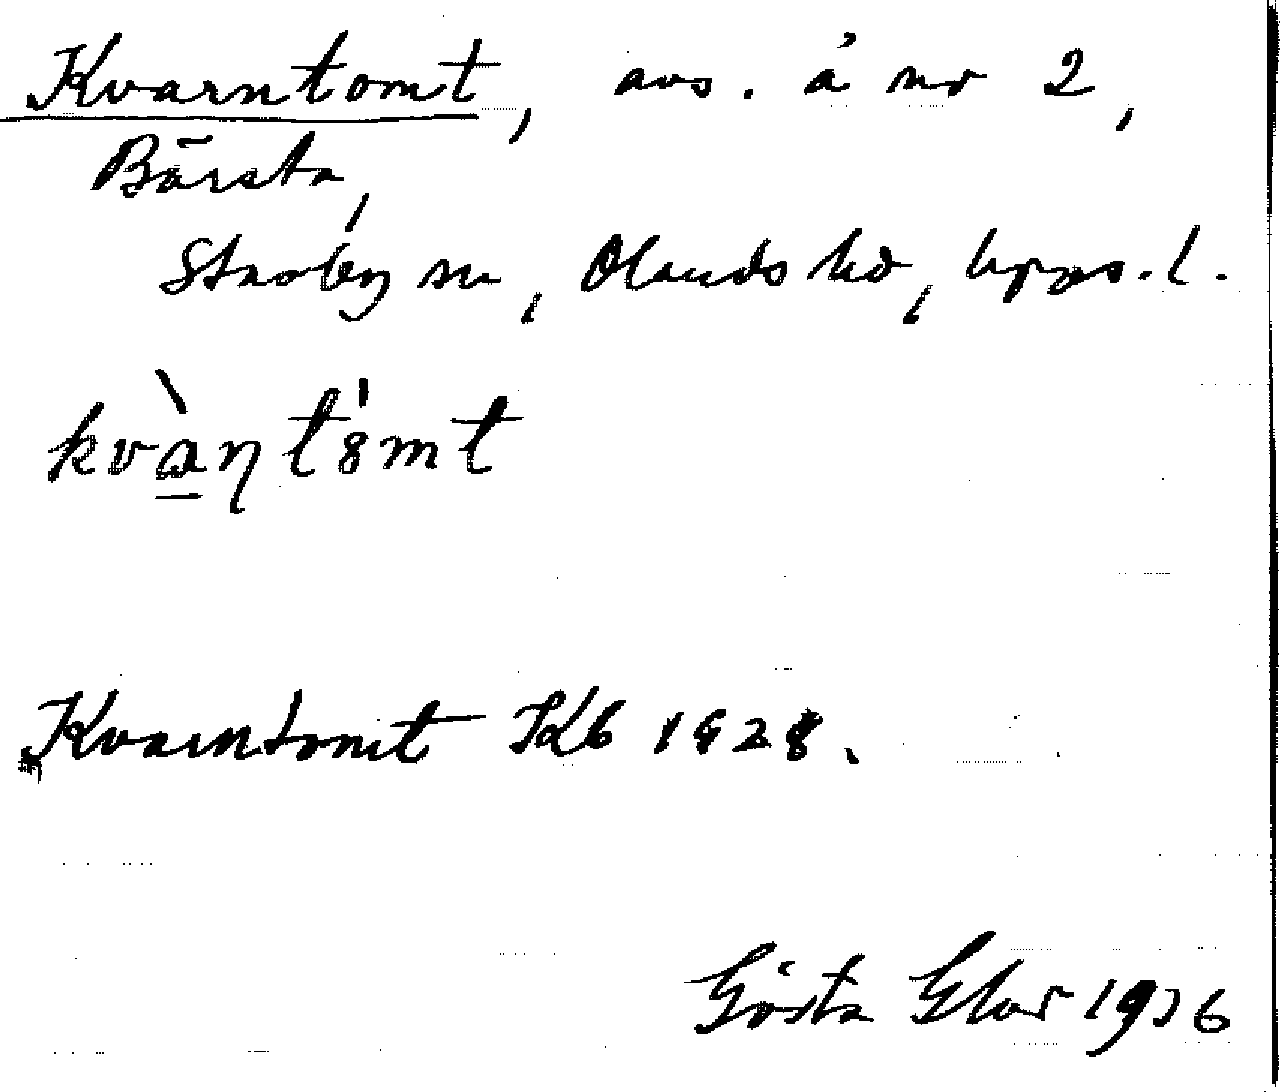 Kvarntomt, avs. å nr 2,
Bärsta,
Stavby sn, Olands hd, Upps. l.
kvàn̩t8mt
Kvarntomt Kb 1628.
Gösta 1936